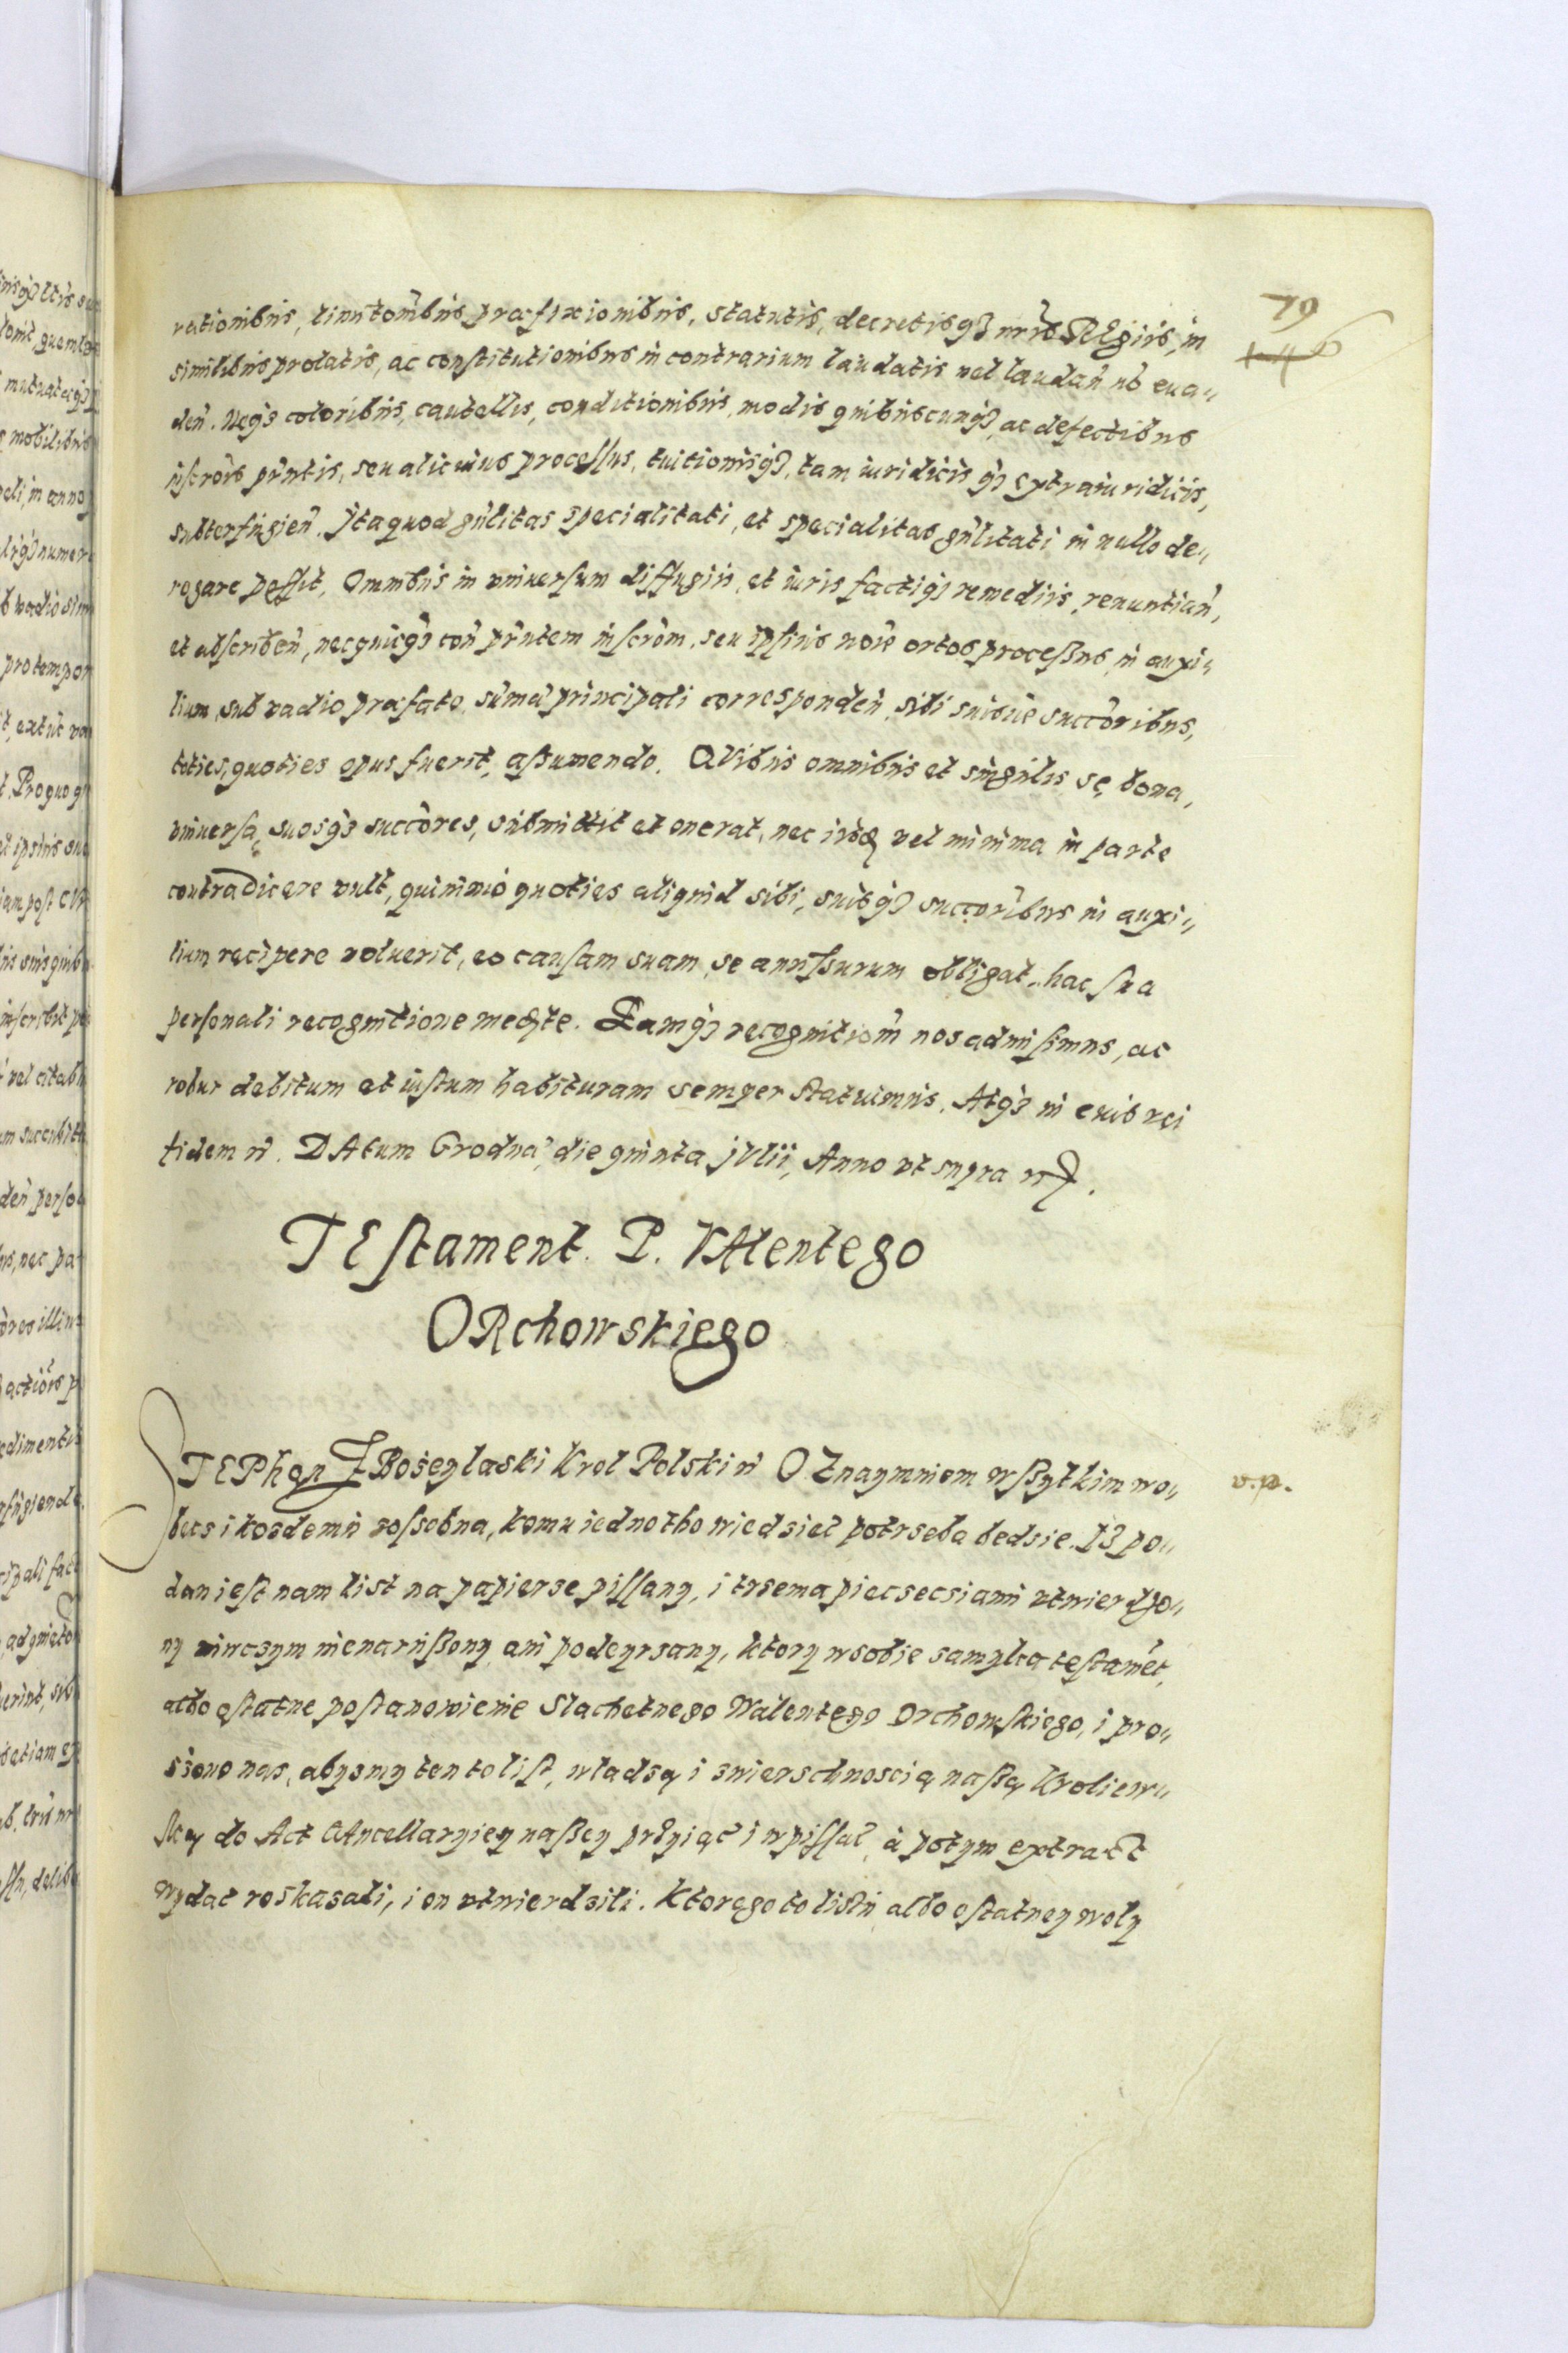 79
146
rationibus, limitõnibus præfixionibus, statutis, decretisq3 nrĩs REgiis, in
similibus prolatis, ac constitutionibus in contrarium laudatis vel laudañ nõ eua„
deñ. Neq3 coloribus, cautellis, conditionibus, modis quibuscunq3, ac defectibus
inscrõis pñtis, seu alicuius processus, tuitionisq3, tam iuridicis q3 extraiuridicis,
subterfugieñ. Jta quod gñlitas specialitati, et specialitas gñlitati in nullo de„
rogare possit, Omnibus in vniuersum diffugiis, et iuris factiq3 remediis, renuntiañ,
et abscribeñ, nec quicq3 coñ pñtem inscrõm, seu ipsius noĩe ortos proceßus, in auxi„
lium, sub vadio præfato, sũmæ principali correspondeñ, sibi suisue succõribus,
toties, quoties opus fuerit, aßumendo. QVibus omnibus et singulis se, bona,
vniuersa, suosq3 succõres, submittit et onerat, nec in vel minima in parte
contradicere vult, quinimò quoties aliquid sibi, suisq3 succõribus in auxi„
lium recipere voluerit, eo causam suam, se amissurum obligat, hac sua
personali recognitione mediñte. Quamq3 recognitiom̃ nos admisimus, ac
robur debitum et iustum habituram semper statuimus. Atq3 in euis rei
fidem rc̃. DAtum Grodnæ, die quinta jVlii, Anno vt supra rc̃.
TEstament. P. VAlentego
ORchowskiego
STEPhan Z Bożey laski Krol Polski rc̃ OZnaymuiem wßytkim wo„
becz i kozdemu zossobna, komu iedno tho wiedziec potrzeba bedzie. I3 po„
dan iest nam list na papierze pissany, i trzema pieczeciami vtwierdzo„
ny niwczym nienarußony, ani podeyrzany, ktory w sobie zamyka testamẽt,
albo ostatne postanowienie Slachetnego Walentego Orchowskiego, i pro„
siono nas, abysmy ten to list, wladzą i zwierzchnoscią naßą Kroliew„
ską do Act CAncellaryiey naßey przyiąc i wpissac, à potym extract
wydac roskazali, i on vtwierdzili. Ktorego to listu albo ostatney woly
v.p.